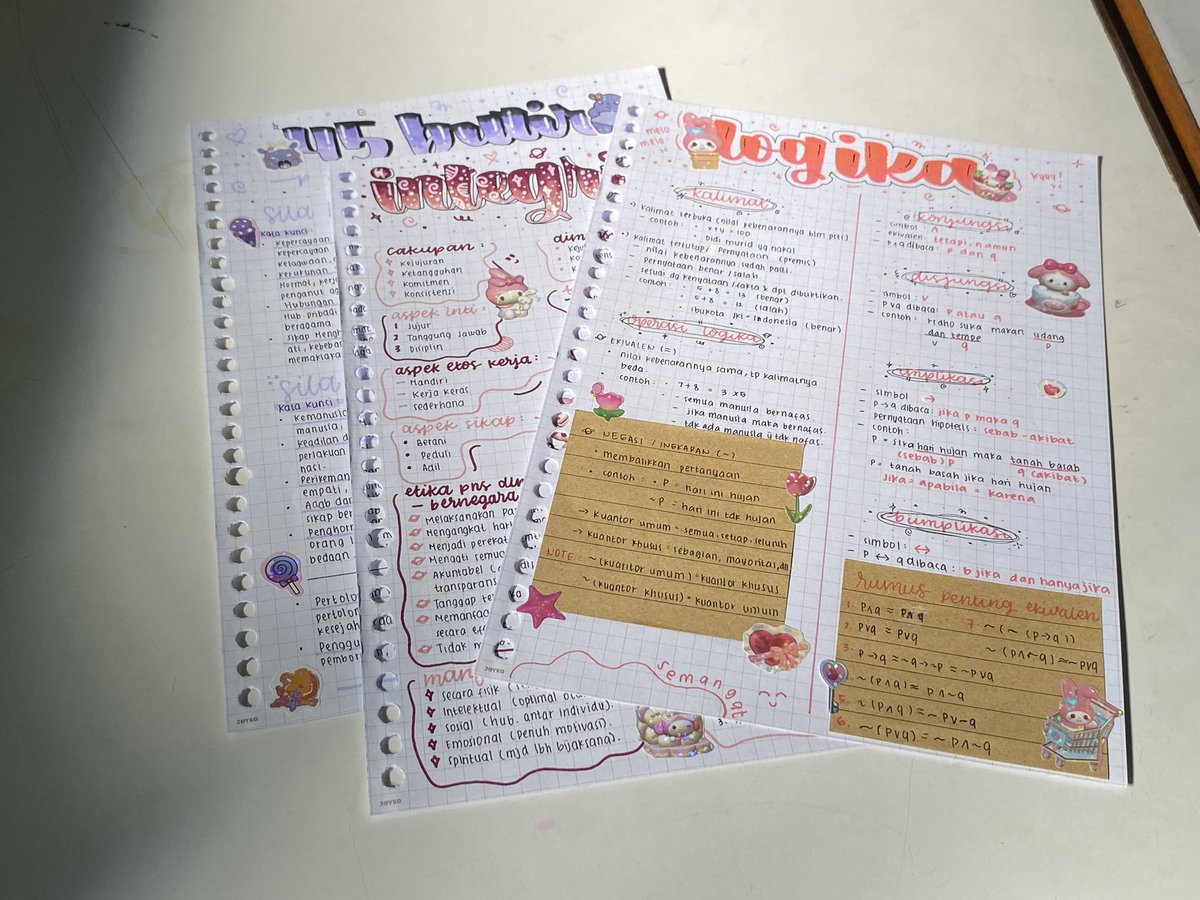 45 butir
sila
Kata kunci :
Kepercayaan
Kepercayaan
Hubungan
Hub. pribadi
beragama
sikap
sila
Kata kunci :
Keadilan
perlakuan
empati,
sikap
orang
bedaan
Pertolo
pertolo
kesejah
Penggu
JOYKO
integri
cakupan :
Kejujuran
Ketangguhan
Komitmen
Konsistensi
aspek inti :
1 Jujur
2 Tanggung Jawab
3 Disiplin
aspek etos kerja :
— Mandiri
— Kerja Keras
— sederhana
aspek sikap :
• Berani
• Peduli
• Adil
etika pns
— bernegara
Melaksanakan
Mengangkat
Menjadi
Akuntabel
transparans
Tanggap
Memanfaa
secara
Tidak
secara fisik
Intelektual (optimal
Sosial (hub. antar individu).
Emosional (penuh motivasi).
spiritual (mjd lbh bijaksana).
JOYKO
melo
melo
logika
kyuu!
kalimat
Kalimat terbuka (nilai kebenarannya blm psti)
- contoh : • x + y = 100
• Didi murid yg nakal
Kalimat tertutup / Pernyataan (premis)
- nilai kebenarannya sudah pasti.
- Pernyataan benar / salah.
- sesuai dg kenyataan / fakta & dpt dibuktikan.
- contoh : • 5 + 8 = 13 (benar)
• 5 + 8 = 12 (salah)
• Ibukota JKT = Indonesia (benar)
operasi logika
EKIVALEN (≡)
• nilai kebenarannya sama, tp kalimatnya
beda.
• contoh : • 7 + 8 = 3 x 5
- semua manusia bernafas.
- jika manusia maka bernafas.
- tdk ada manusia yg tdk nafas.
NEGASI / INGKARAN (~)
• membalikkan pertanyaan
• contoh : • P = hari ini hujan
~ P = hari ini tdk hujan
→ Kuantor umum = semua, setiap, seluruh
→ Kuantor khusus = sebagian, mayoritas, dll
NOTE : ~(kuantor umum) = kuantor khusus
~(kuantor khusus) = kuantor umum
JOYKO
semangat
konjungsi
- simbol : ∧
- ekivalen : tetapi, namun
- P∧q dibaca : P dan q
disjungsi
- simbol : v
- P v q dibaca : P atau q
- contoh : Ridho suka makan udang
dan tempe p
v q
implikasi
- simbol →
- P→q dibaca : jika p maka q
- pernyataan hipotetis : sebab-akibat
- contoh :
P = Jika hari hujan maka tanah basah
(sebab) p q (akibat)
P = tanah basah jika hari hujan
jika = apabila = karena
biimplikasi
- simbol : ↔
- P ↔ q dibaca : p jika dan hanya jika
rumus penting ekivalen
1. P∧q ≡ P∧q
2. Pvq ≡ Pvq
3. P→q ≡ ~q→~p ≡ ~pvq
4. ~(P∧q) ≡ P∧~q
5. ~(P∧q) ≡ ~Pv~q
6. ~(Pvq) = ~P∧~q
7. ~(~(P→q))
~(P∧~q) ≡ ~Pvq